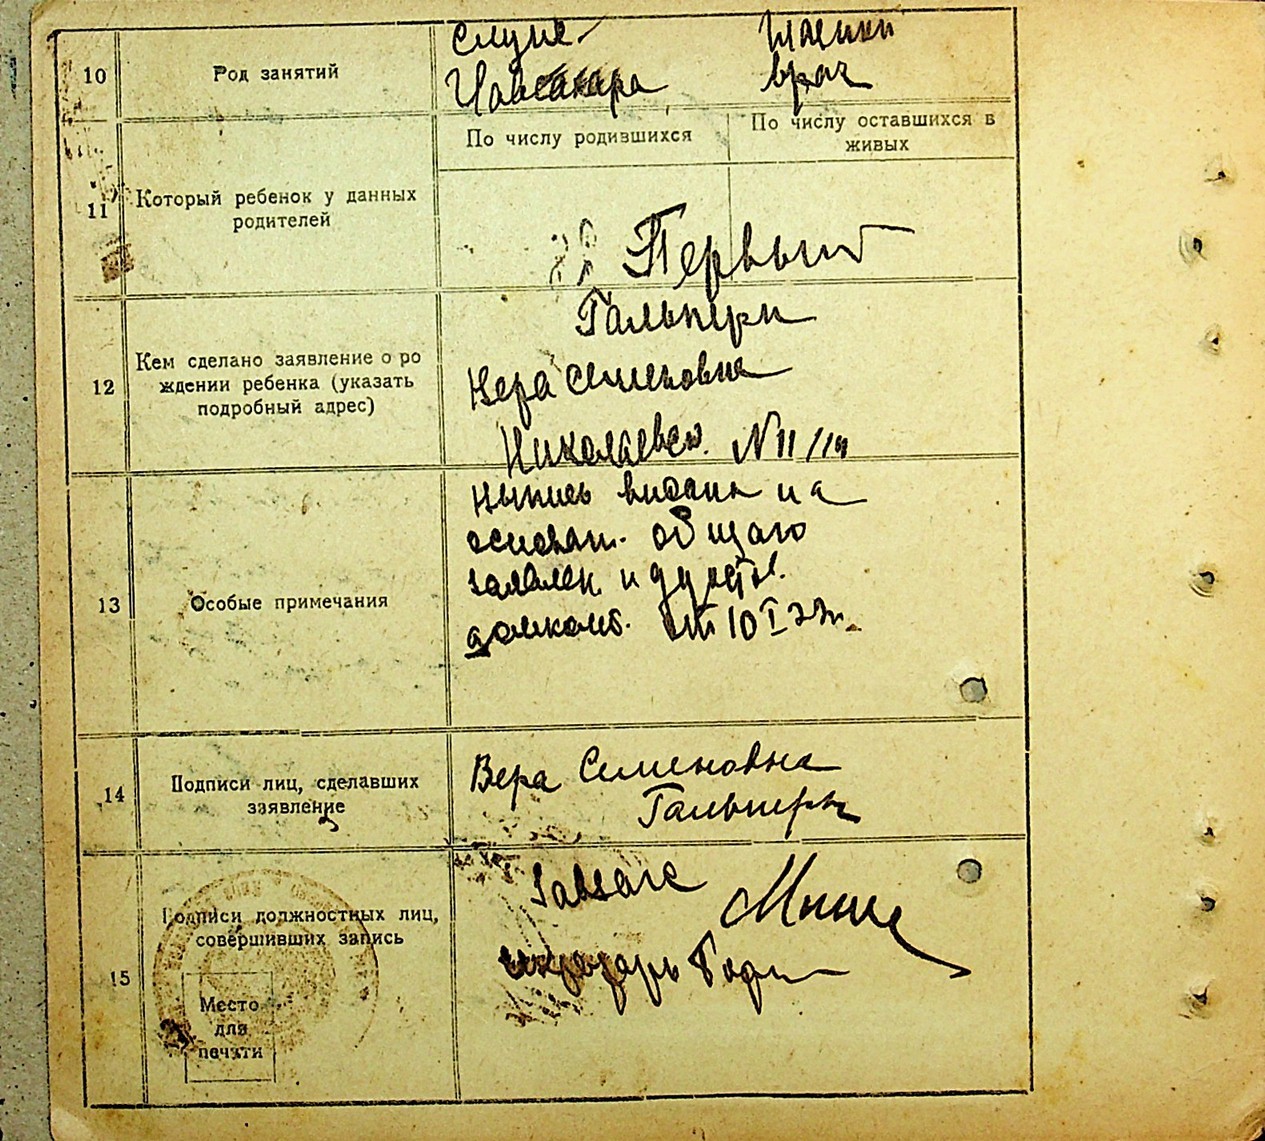 10 Род занятий
служ.
врач
По числу родившихся
По числу оставшихся в
живых
11 Который ребенок у данных
родителей
Первый
12 Кем сделано заявление о ро
ждении ребенка (указать
подробный адрес)
Гальперн
Вера Семеновна
Николаевск. N 11/
13 Особые примечания
на
основан. общаго
заявлен. и
домкомб. от 10 I
14 Подписи лиц, сделавших
заявление
Вера Семеновна
Гальперн
15 Подписи должностных лиц,
совершивших запись
Место
для
печати
Завзагс